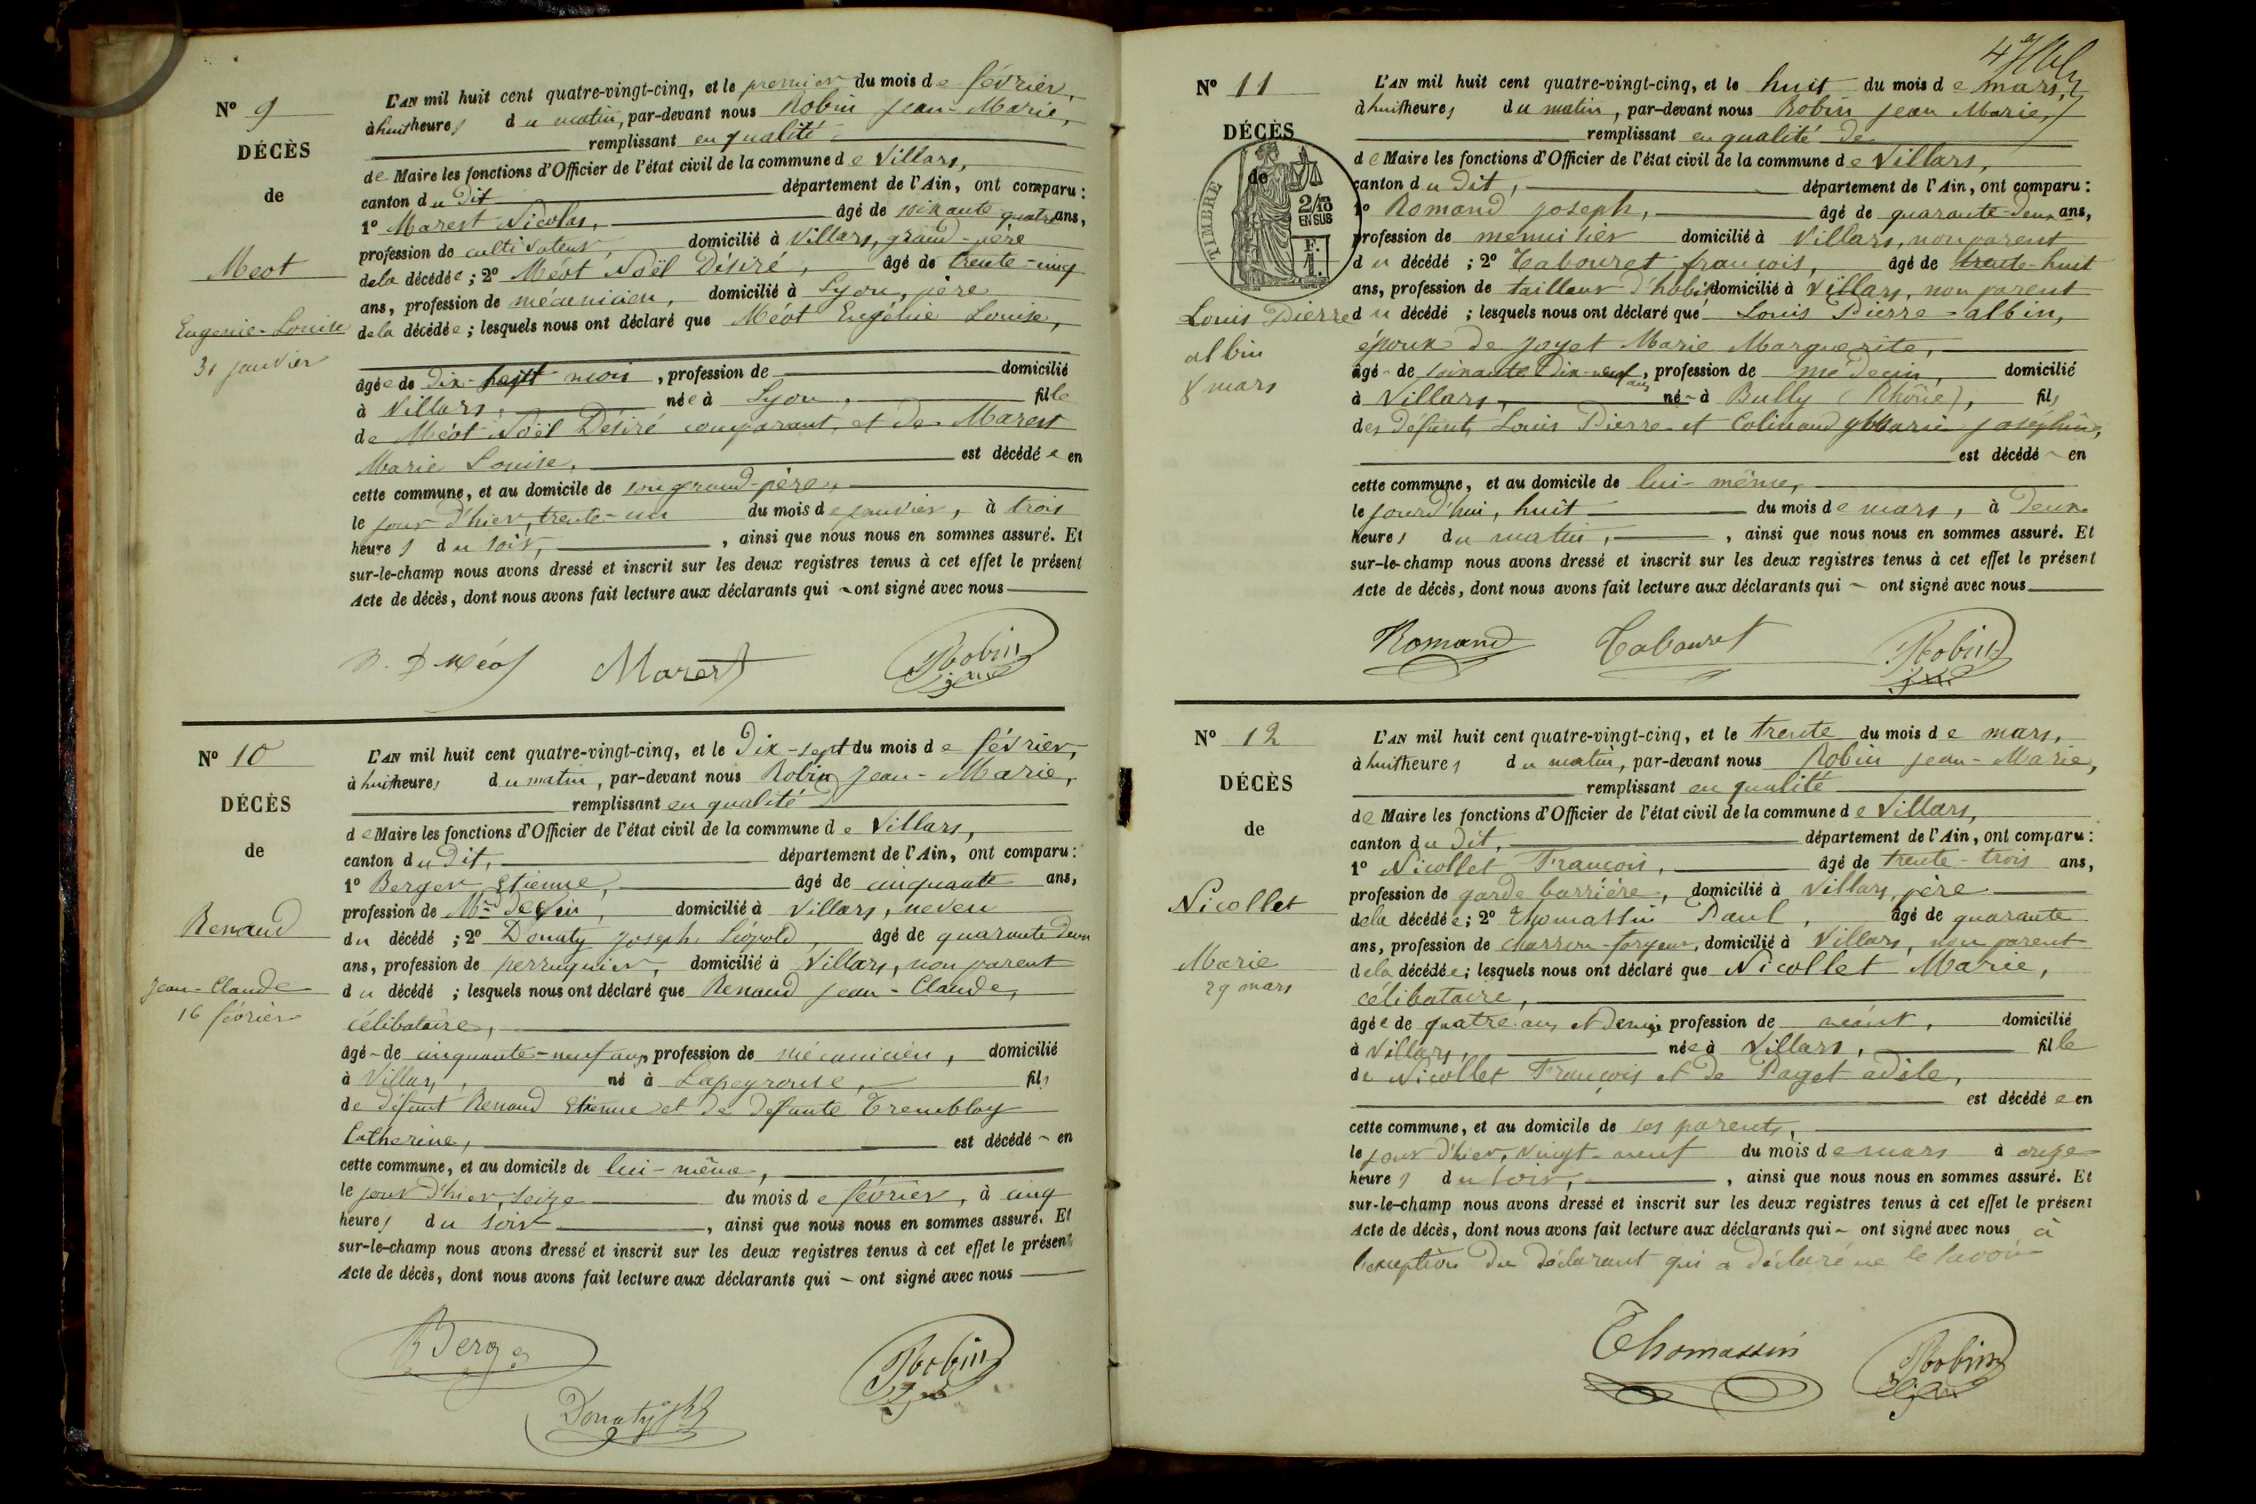 Nº 9
DÉCÈS
de
Meot
Eugenie-Louise
31 janvier
L'AN mil huit cent quatre-vingt-cinq, et le premier du mois de février,
à huit heures du matin, par-devant nous Robin Jean-Marie,
remplissant en qualité
de Maire les fonctions d'Officier de l'état civil de la commune de Villars,
canton du dit département de l'Ain, ont comparu :
1º Marest Nicolas, âgé de soixante quatre ans,
profession de cultivateur, domicilié à Villars, grand-père
de la décédée ; 2º Méot Noël Désiré, âgé de trente-cinq
ans, profession de mécanicien, domicilié à Lyon, père
de la décédée ; lesquels nous ont déclaré que Méot Eugénie Louise,
âgée de dix-huit mois, profession de domicilié
à Villars, née à Lyon, fille
de Méot Noël Désiré comparant, et de Marest
Marie Louise, est décédée en
cette commune, et au domicile de son grand-père,
le jour d'hier, trente-un du mois de janvier, à trois
heures du soir, , ainsi que nous nous en sommes assuré. Et
sur-le-champ nous avons dressé et inscrit sur les deux registres tenus à cet effet le présent
Acte de décès, dont nous avons fait lecture aux déclarants qui ont signé avec nous
N. D Méot Marest Robin
Nº 10
DÉCÈS
de
Renaud
Jean-Claude
16 février
L'AN mil huit cent quatre-vingt-cinq, et le dix-sept du mois de février,
à huit heures du matin, par-devant nous Robin Jean-Marie,
remplissant en qualité
de Maire les fonctions d'Officier de l'état civil de la commune de Villars,
canton du dit, département de l'Ain, ont comparu :
1º Berger Etienne, âgé de cinquante ans,
profession de domicilié à Villars, neveu
du décédé ; 2º Donaty Joseph Léopold, âgé de quarante deux
ans, profession de perruquier, domicilié à Villars, non parent
du décédé ; lesquels nous ont déclaré que Renaud Jean-Claude,
célibataire,
âgé de cinquante-neuf ans, profession de mécanicien, domicilié
à Villars, né à Lapeyrouse, fils
de défunt Renaud Etienne et de défunte Tremblay
Catherine, est décédé en
cette commune, et au domicile de lui-même,
le jour d'hier, seize du mois de février, à cinq
heures du soir , ainsi que nous nous en sommes assuré. Et
sur-le-champ nous avons dressé et inscrit sur les deux registres tenus à cet effet le présent
Acte de décès, dont nous avons fait lecture aux déclarants qui ont signé avec nous
Berger
Donaty Robin
Nº 11
DÉCÈS
de
TIMBRE
2/10
EN SUS
F.
1.
Louis Pierre
albin
8 mars
L'AN mil huit cent quatre-vingt-cinq, et le huit du mois de mars,
à huit heures du matin, par-devant nous Robin Jean Marie,
remplissant en qualité de
de Maire les fonctions d'Officier de l'état civil de la commune de Villars,
canton du dit, département de l'Ain, ont comparu :
1º Romand Joseph, âgé de quarante-deux ans,
profession de menuisier domicilié à Villars, non parent
du décédé ; 2º Tabouret françois, âgé de trente-huit
ans, profession de tailleur d'habits domicilié à Villars, non parent
du décédé ; lesquels nous ont déclaré que Louis Pierre-albin,
époux de Joyet Marie Marguerite,
âgé de soixante dix-neuf ans, profession de médecin, domicilié
à Villars, né à Bully (Rhône), fils
des défunts Louis Pierre et Colinand Marie Joséphine,
est décédé en
cette commune, et au domicile de lui-même,
le jourd'hui, huit du mois de mars, à deux
heures du matin, , ainsi que nous nous en sommes assuré. Et
sur-le-champ nous avons dressé et inscrit sur les deux registres tenus à cet effet le présent
Acte de décès, dont nous avons fait lecture aux déclarants qui ont signé avec nous
Romand Tabouret Robin
Nº 12
DÉCÈS
de
Nicollet
Marie
29 mars
L'AN mil huit cent quatre-vingt-cinq, et le trente du mois de mars,
à huit heures du matin, par-devant nous Robin Jean-Marie,
remplissant en qualité
de Maire les fonctions d'Officier de l'état civil de la commune de Villars,
canton du dit, département de l'Ain, ont comparu :
1º Nicollet François, âgé de trente-trois ans,
profession de garde barrière, domicilié à Villars, père
de la décédée ; 2º Thomassin Paul, âgé de quarante
ans, profession de charron-forgeur, domicilié à Villars, non parent
de la décédée ; lesquels nous ont déclaré que Nicollet Marie,
célibataire,
âgée de quatre ans et demi, profession de néant, domicilié
à Villars, née à Villars, fille
de Nicollet François et de Paget adèle,
est décédée en
cette commune, et au domicile de ses parents,
le jour d'hier, vingt-neuf du mois de mars à onze
heures du soir, , ainsi que nous nous en sommes assuré. Et
sur-le-champ nous avons dressé et inscrit sur les deux registres tenus à cet effet le présent
Acte de décès, dont nous avons fait lecture aux déclarants qui ont signé avec nous à
l'exception du déclarant qui a déclaré ne le savoir
Thomassin Robin